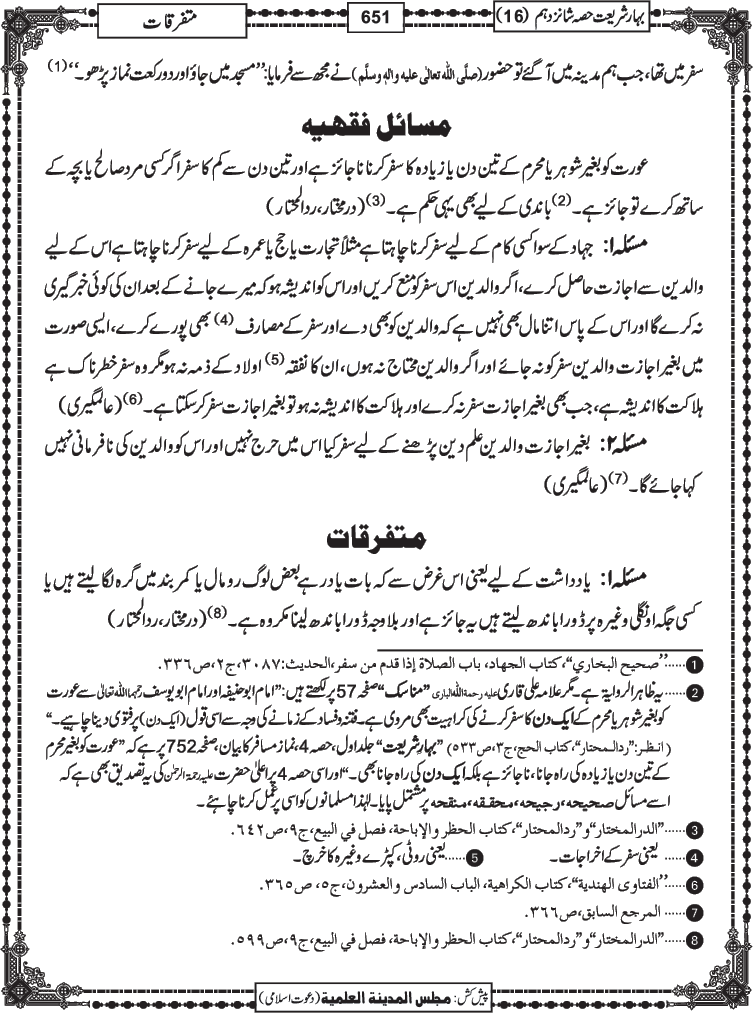 بہار شریعت حصہ شانزدہم (16)
651
متفرقات
سفر میں تھا، جب ہم مدینہ میں آگئے تو حضور (صلَّی اللہ تعالٰی علیہ واٰلہٖ وسلَّم) نے مجھ سے فرمایا: ’’مسجد میں جاؤ اور دو رکعت نماز پڑھو۔‘‘(1)
مسائل فقھیہ
عورت کو بغیر شوہر یا محرم کے تین دن یا زیادہ کا سفر کرنا ناجائز ہے اور تین دن سے کم کا سفر اگر کسی مرد صالح یا بچہ کے
ساتھ کرے تو جائز ہے۔(2) باندی کے لیے بھی یہی حکم ہے۔(3) (درمختار، ردالمحتار)
مسئلہ۱: جہاد کے سوا کسی کام کے لیے سفر کرنا چاہتا ہے مثلاً تجارت یا حج یا عمرہ کے لیے سفر کرنا چاہتا ہے اس کے لیے
والدین سے اجازت حاصل کرے، اگر والدین اس سفر کو منع کریں اور اس کو اندیشہ ہو کہ میرے جانے کے بعد ان کی کوئی خبر گیری
نہ کرے گا اور اس کے پاس اتنا مال بھی نہیں ہے کہ والدین کو بھی دے اور سفر کے مصارف (4) بھی پورے کرے، ایسی صورت
میں بغیر اجازت والدین سفر کو نہ جائے اور اگر والدین محتاج نہ ہوں، ان کا نفقہ (5) اولاد کے ذمہ نہ ہو مگر وہ سفر خطرناک ہے
ہلاکت کا اندیشہ ہے، جب بھی بغیر اجازت سفر نہ کرے اور ہلاکت کا اندیشہ نہ ہو تو بغیر اجازت سفر کرسکتا ہے۔(6) (عالمگیری)
مسئلہ۲: بغیر اجازت والدین علم دین پڑھنے کے لیے سفر کیا اس میں حرج نہیں اور اس کو والدین کی نافرمانی نہیں
کہا جائے گا۔(7) (عالمگیری)
متفرقات
مسئلہ۱: یادداشت کے لیے یعنی اس غرض سے کہ بات یاد رہے بعض لوگ رومال یا کمربند میں گرہ لگا لیتے ہیں یا
کسی جگہ اونگلی وغیرہ پر ڈورا باندھ لیتے ہیں یہ جائز ہے اور بلا وجہ ڈورا باندھ لینا مکروہ ہے۔(8) (درمختار، ردالمحتار)
1 ......’’صحیح البخاري‘‘، کتاب الجھاد، باب الصلاۃ إذا قدم من سفر، الحدیث: ۳۰۸۷، ج۲، ص۳۳۶.
2 ......یہ ظاہر الروایۃ ہے۔ مگر علامہ علی قاری علیہ رحمۃ اللہ الباری ’’مناسک‘‘ صفحہ 57 پر لکھتے ہیں: ’’امام ابوحنیفہ اور امام ابو یوسف رحمہما اللہ تعالٰی سے عورت
کو بغیر شوہر یا محرم کے ایک دن کا سفر کرنے کی کراہیت بھی مروی ہے۔ فتنہ وفساد کے زمانے کی وجہ سے اسی قول (ایک دن) پر فتوی دینا چاہیے۔‘‘
(انظر: ’’ردالمحتار‘‘، کتاب الحج، ج۳، ص۵۳۳) ’’بہار شریعت‘‘ جلد اول، حصہ 4، نماز مسافر کا بیان، صفحہ 752 پر ہے کہ ’’عورت کو بغیر محرم
کے تین دن یا زیادہ کی راہ جانا، ناجائز ہے بلکہ ایک دن کی راہ جانا بھی۔‘‘ اور اسی حصہ 4 پر اعلیٰ حضرت علیہ رحمۃ الرحمٰن کی یہ تصدیق بھی ہے کہ
اسے مسائل صحیحہ، رجیحہ، محققہ، منقحہ پر مشتمل پایا۔ لہٰذا مسلمانوں کو اسی پر عمل کرنا چاہئے۔
3 ......’’الدرالمختار‘‘ و’’ردالمحتار‘‘، کتاب الحظر والإباحۃ، فصل في البیع، ج۹، ص۶۴۲.
4 ...... یعنی سفر کے اخراجات۔ 5 ......یعنی روٹی، کپڑے وغیرہ کا خرچ۔
6 ......’’الفتاوی الھندیۃ‘‘، کتاب الکراھیۃ، الباب السادس والعشرون، ج۵، ص۳۶۵.
7 ...... المرجع السابق، ص۳۶۶.
8 ......’’الدرالمختار‘‘ و’’ردالمحتار‘‘، کتاب الحظر والإباحۃ، فصل في البیع، ج۹، ص۵۹۹.
پیش کش: مجلس المدینۃ العلمیۃ (دعوت اسلامی)